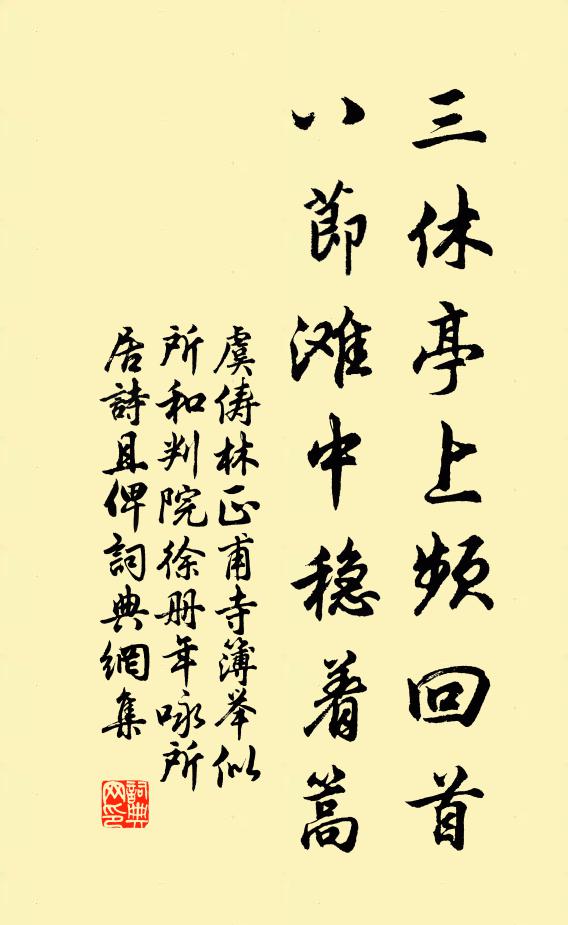 三休亭上频回首
八節滩中稳着篙
虞俦林正甫寺簿举似
所和判院徐册年咏所
居詩且俾詞典網集
詞典網印